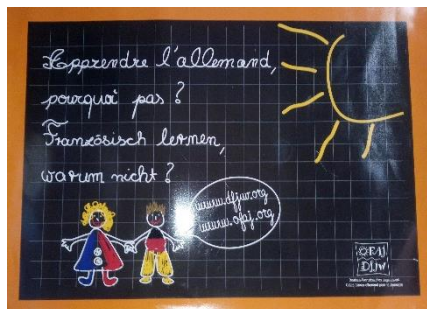 Apprendre l'allemand,
pourquoi pas ?
Französisch lernen,
warum nicht ?
www.dfjw.org
www.ofaj.org
OFAJ
DFJW